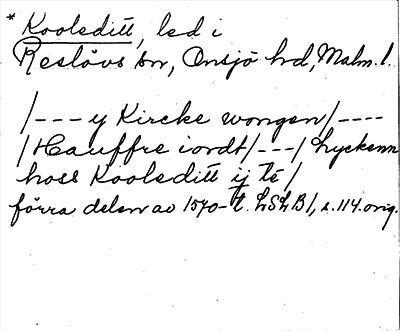 * Kooleditt, led i
Reslövs sn, Onsjö hd, Malm. l.
/--- y Kircke wongen/----
/Hauffre iordt/---/Lyckenn
hoss Kooleditt ij té/
förra delen av 1570-t. LSLB/, s. 114. orig.